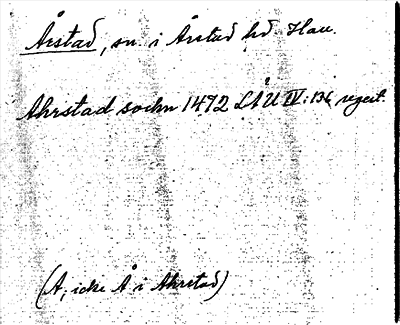 Årstad, sn. i Årstad hd. Hall.
Ahrstad sochn 1472 LÅU IV: 136 regest.
(A, icke Å i Ahrstad)